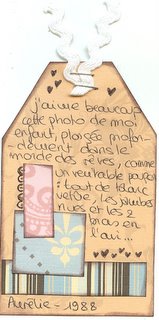 j'aime beaucoup
cette photo de moi
enfant, plongée profon
dément dans le
monde des rêves, comme
un véritable papa
: tout de blanc
vêtue, les jambes
nues et les 2
bras en
l'air...
Aurélie - 1988